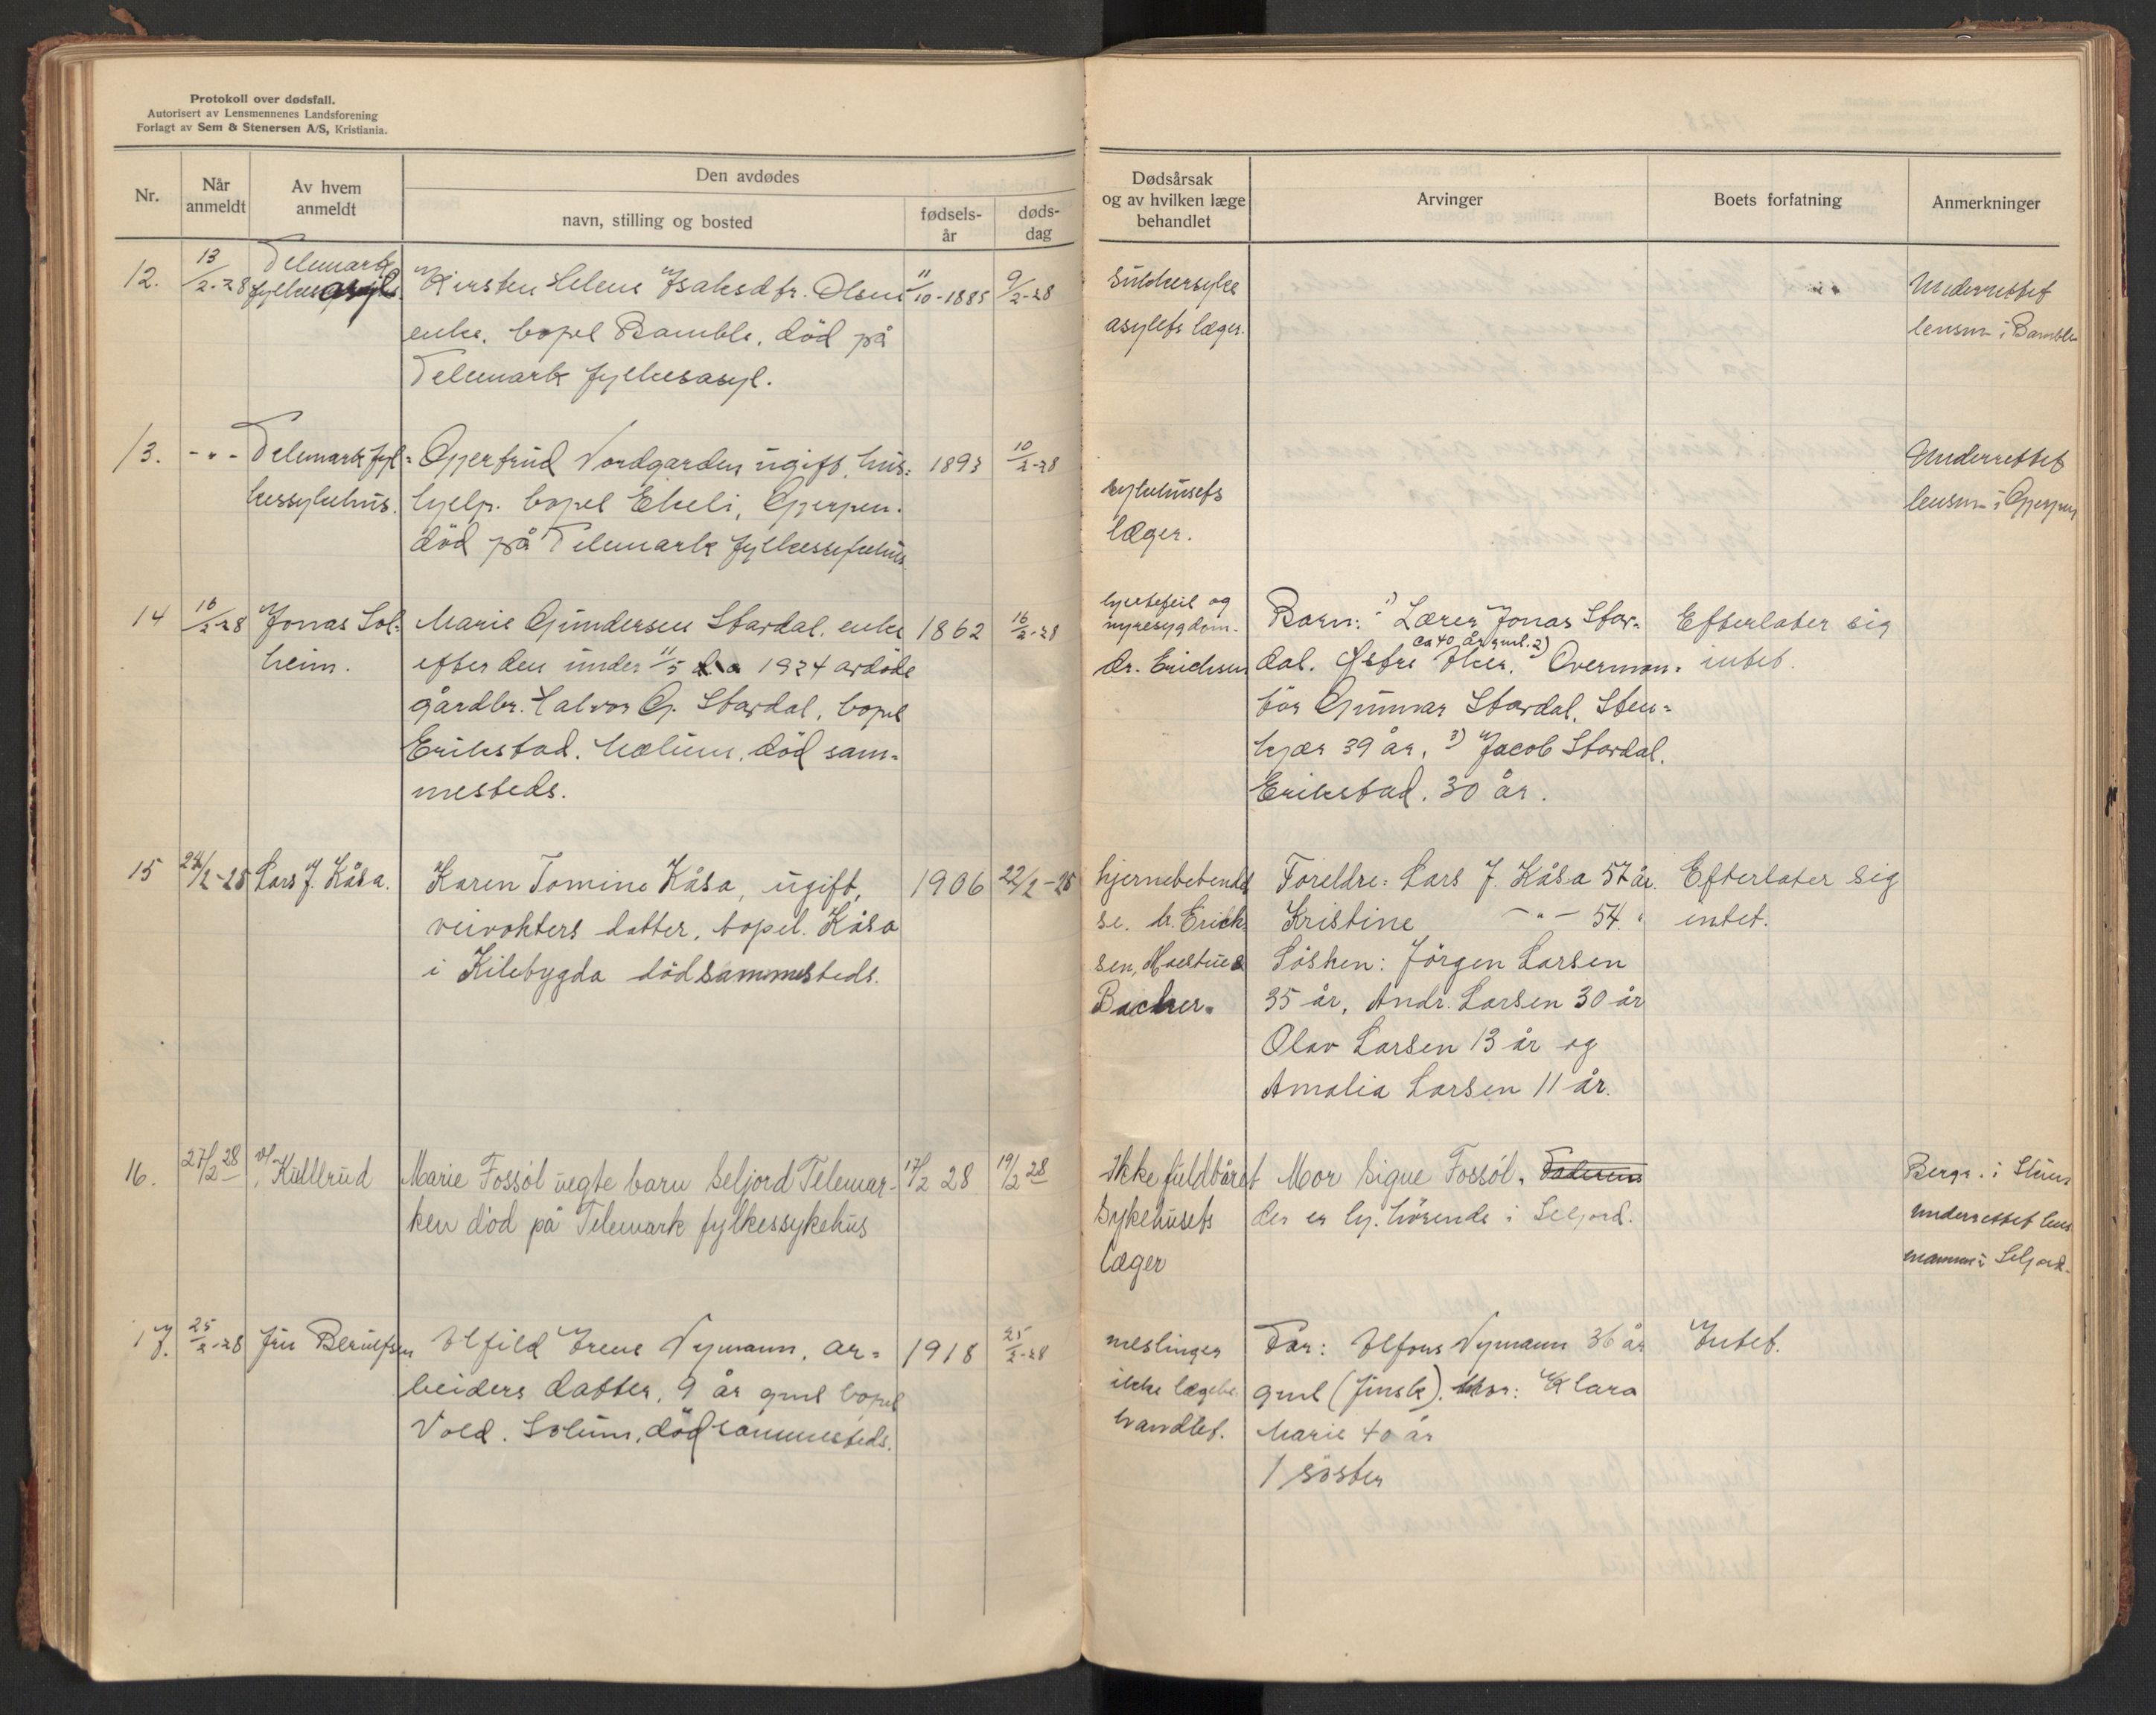 Protokoll over dødsfall.
Autorisert av Lensmennenes Landsforening
Forlagt av Sem & Stenersen A/S, Kristiania.
Nr.
Når anmeldt
Av hvem anmeldt
Den avdødes
navn, stilling og bosted
fødsels-år
døds-dag
Dødsårsak og av hvilken læge behandlet
Arvinger
Boets forfatning
Anmerkninger
12. 13/2-28 Telemark
fylkesasyl
Kirsten Helene Isaksdtr. Olsen 11/10-1885 9/2-28
enke, bopel Bamble, död på
Telemark fylkesasyl.
Sukkersyke
asylets læger.
Underrettet
lensm i Bamble
13. -"- Telemark fyl-
kessykehus.
Gjertrud Nordgarden ugift, hus= 1893 10/2-28
hjelp. bopel Ekeli, Gjerpen.
död på Telemark fylkessykehus
sykehusets
læger.
Underrettet
lensm i Gjerpen
14 16/2-28 Jonas Sol=
heim.
Marie Gundersen Stardal, enke 1862 16/2-28
efter den under 11/5 1924 avdöde
gårdbr. Halvor G. Stardal, bopel
Erikstad. Mælum, död sam=
mesteds.
hjertefeil og
nyresygdom.
dr. Erichsen
Barn: 1) Lærer Jonas Star=
ca 40 år gml. 2)
dal. Østre Overman=
Gunnar Stardal, Sten=
kjær 39 år, 3) Jacob Stardal.
Erikstad. 30 år.
Efterlater sig
intet.
15 24/2-28 Lars J. Kåsa.
Karen Tomine Kåsa, ugift, 1906 22/2-28
veivokters datter, bopel. Kåsa
i Kilebygda död sammesteds.
hjernebetendel
se. dr. Erich
sen,
Backer.
Foreldre: Lars J. Kåsa 57 år.
Kristine -"- 54 "
Søsken: Jörgen Larsen
35 år, Andr. Larsen 30 år
Olav Larsen 13 år og
Amalia Larsen 11 år.
Efterlater sig
intet.
16. 27/2 28 v/ Kullerud
Marie Fossöl uegte barn Seljord Telemar- 17/2 28 19/2 28
ken död på Telemark fylkessykehus
Ikke fuldbåret
Sykehusets
læger
Mor Signe Fossöl.
der er hj. hörende i Seljord.
underrettet lens
mannen i Seljord.
17. 25/2-28
Alfild Irene Nymann, ar= 1918 25/2-28
beiders datter, 9 år gml bopel
Vold. Solum, död sammesteds.
meslinger
ikke lægebe
handlet.
Far: Alfons Nymann 36 år
gml (finsk). Mor: Klara
Marie 40 år
1 søster
Intet.